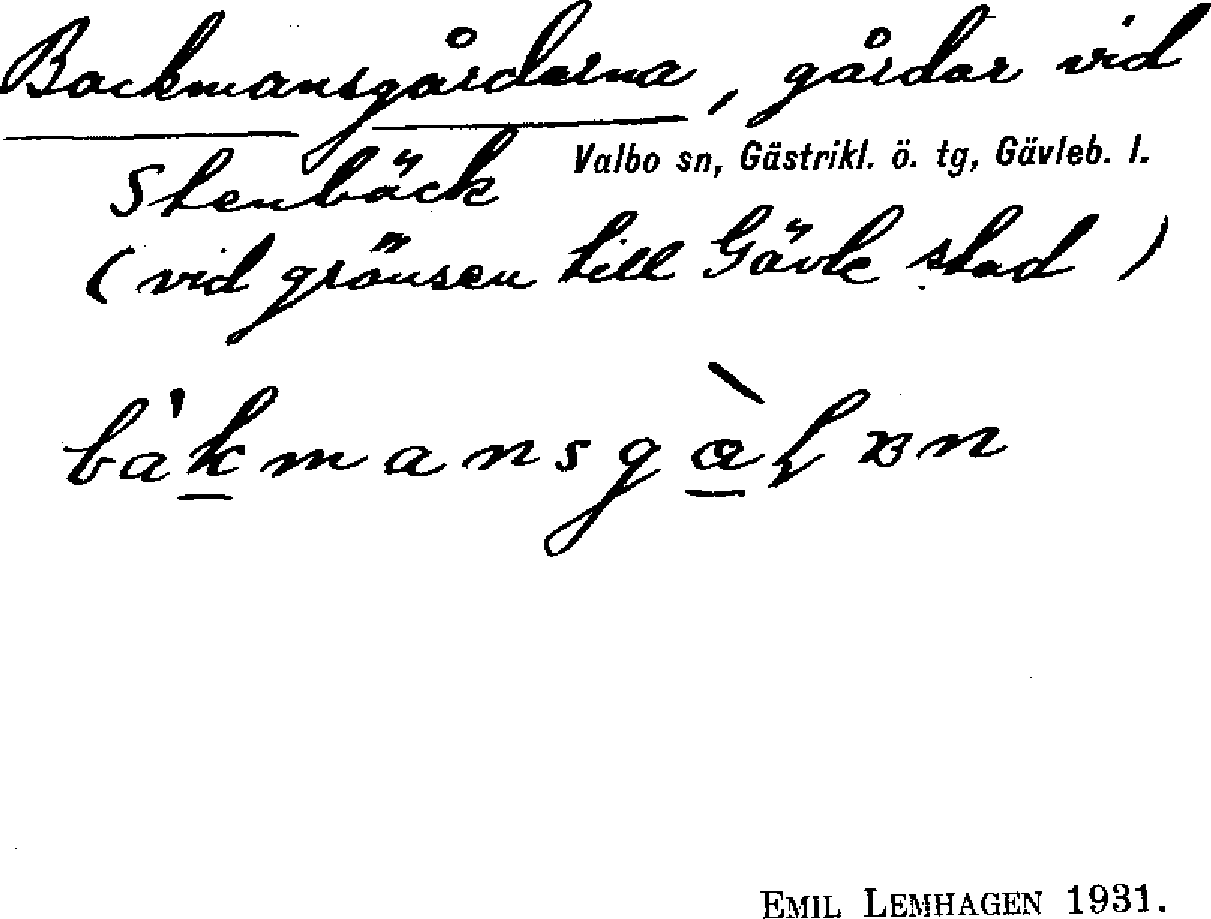 Backmansgårdarna, gårdar vid
Stenbäck
Valbo sn, Gästrikl. ö. tg, Gävleb. l.
(vid gränsen till Gävle stad)
EMIL LEMHAGEN 1931.